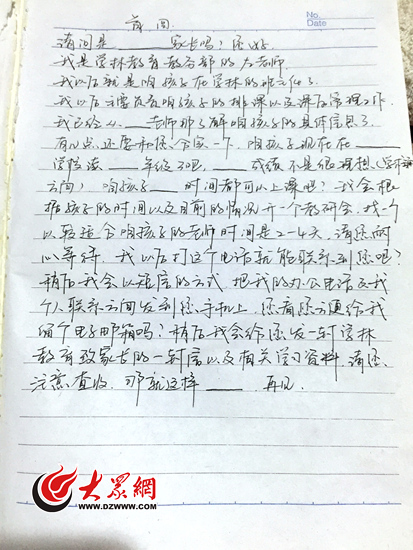 No.
Date
首周
请问是____家长吗?您好.
我是学林教育教务部的方老师
我以后就是咱孩子在学林的班主任了.
我以后主要负责咱孩子的排课以及课后管理工作.
我已经从____老师那了解咱孩子的具体信息了.
有几点还要和您合实一下,咱孩子现在在____
学院读____年级了吧,____成绩不是很理想(学不
方向) 咱孩子____时间都可以上课吧?我会根
据孩子的时间以及目前的情况开一个教研会,找一个
比较适合咱孩子的老师时间是2-4天,请您耐
心等待,我以后打这个电话就能联系到您吧?
稍后我会以短信的方式,把我的办公电话及我
个人联系方式发到您手机上,您看您方便给我
留个电子邮箱吗?稍后我会给您发一封学林
教育致家长的一封信以及相关学习资料,请您、
注意查收,那就这样____再见.
大众网
WWW.DZWWW.COM